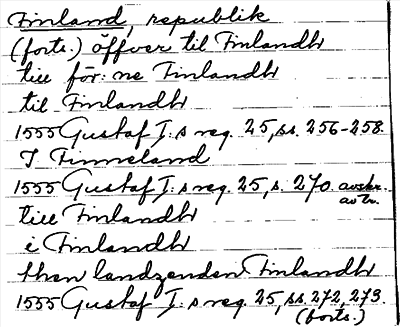 Finland, republik
(forts.) öffver til Finlandh
till för:ne Finlandh
til Finlandh
1555 Gustaf I:s reg. 25, ss. 256-258.
I Finneland
1555 Gustaf I:s reg. 25, s. 270 avskr.
av tr.
till Finlandh
i Finlandh
then landzenden Finlandh
1555 Gustaf I:s reg. 25, ss. 272, 273.
(forts.)